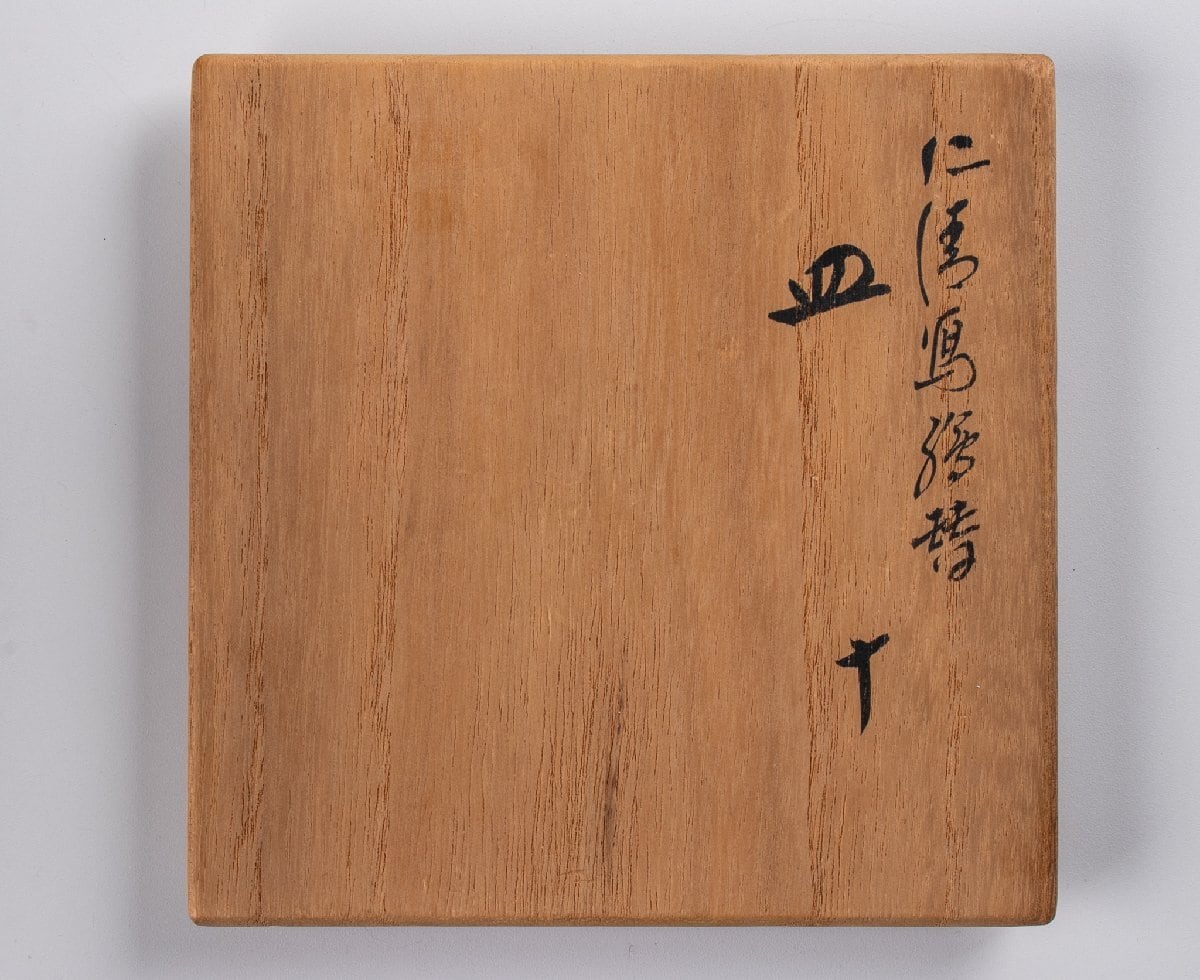 仁清写繪替
皿 十